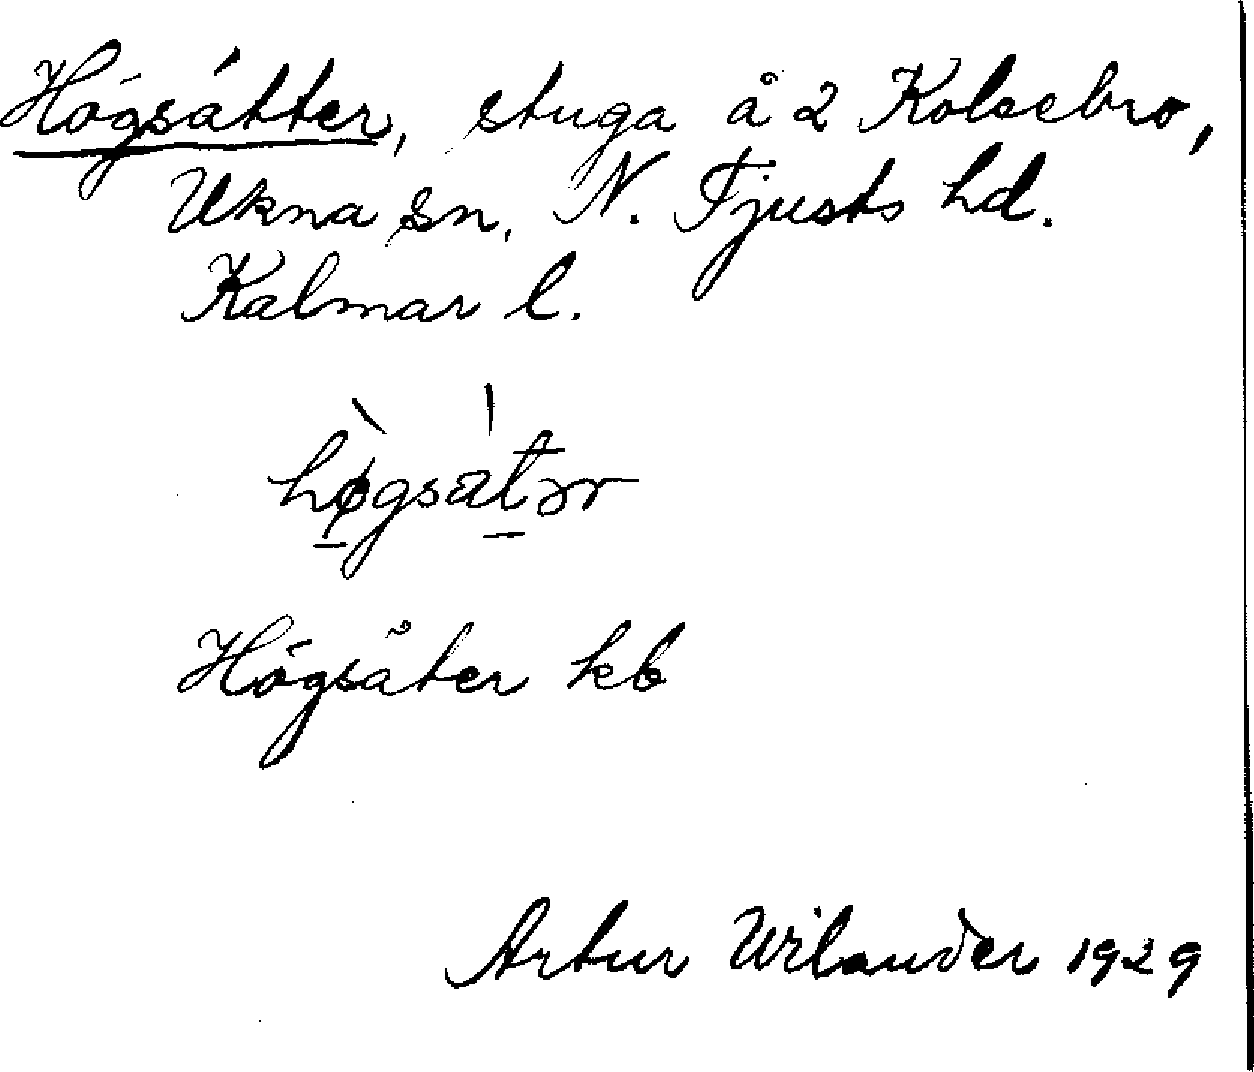 Högsätter, stuga å 2 Kolsebro,
Ukna sn, N. Tjusts hd.
Kalmar l.
hø̀gsátər
Högsåter kb
Artur Wilander 1929